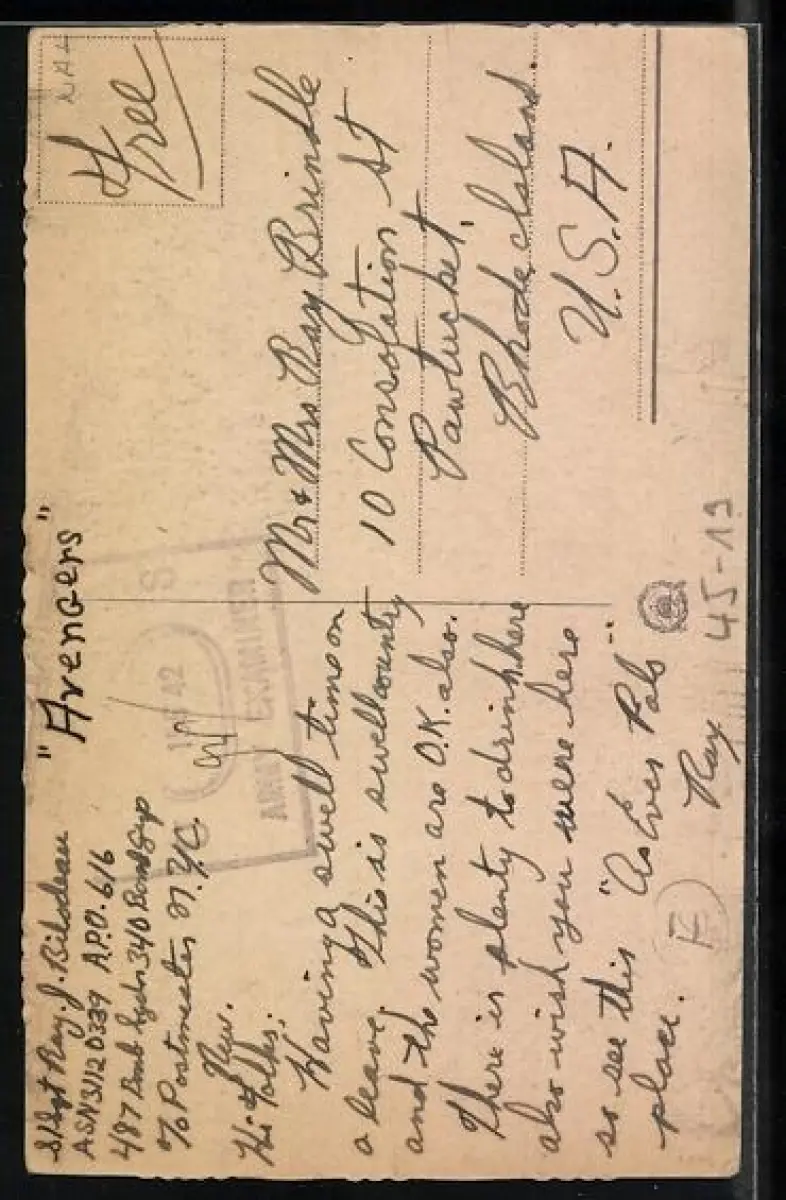 S/Sgt Ray. J. Bilodeau
ASN 31120339 A.P.O. 616
487 Bomb Sqdn 340 Bomb Grp
c/o Postmaster, N.Y.C.
"Avengers"
Free
U S
ARMY EXAMINER
Hi Folks.
Having a swell time on
a leave. This is swell country
and the women are O.K. also.
There is plenty to drink here
also wish you were here
so see this
place.
"As Ever Pals"
Ray
Mr & Mrs Ray Brindle
10 Consolation St
Pawtucket,
Rhode Island.
U.S.A.
45-19
F